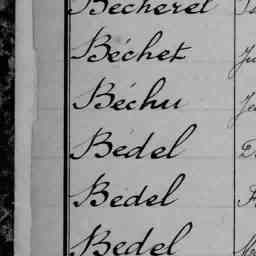 Becherel
Béchet
Béchu
Bedel
Bedel
Bedel